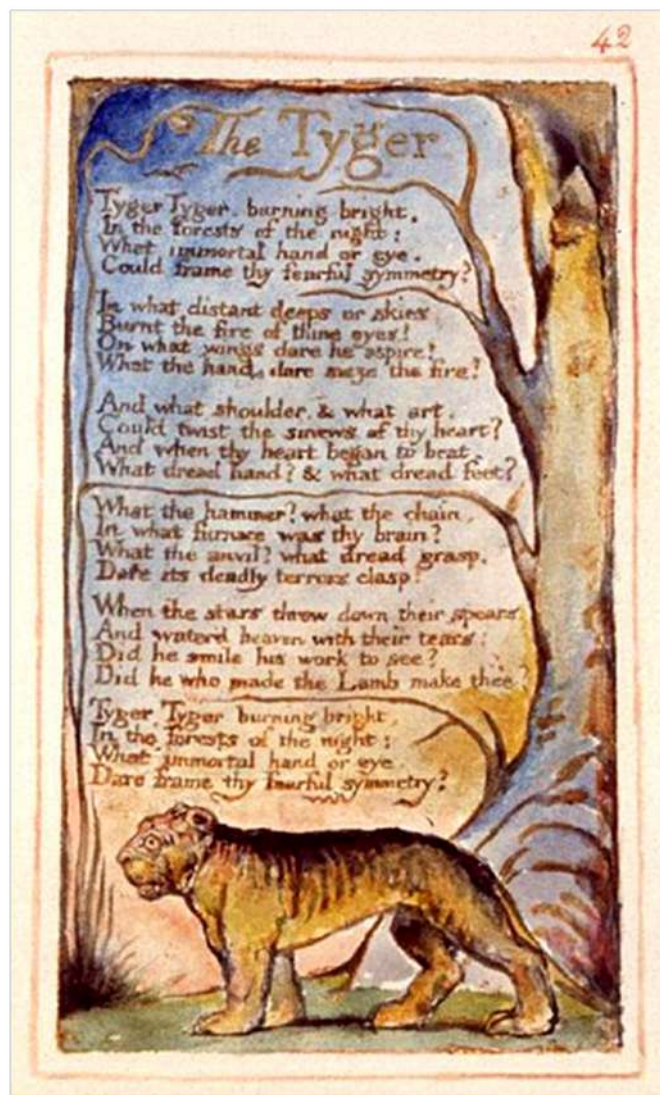 42
The Tyger
Tyger Tyger, burning bright,
In the forests of the night;
What immortal hand or eye,
Could frame thy fearful symmetry?
In what distant deeps or skies
Burnt the fire of thine eyes?
On what wings dare he aspire?
What the hand, dare sieze the fire?
And what shoulder, & what art,
Could twist the sinews of thy heart?
And when thy heart began to beat,
What dread hand? & what dread feet?
What the hammer? what the chain,
In what furnace was thy brain?
What the anvil? what dread grasp,
Dare its deadly terrors clasp!
When the stars threw down their spears
And water'd heaven with their tears:
Did he smile his work to see?
Did he who made the Lamb make thee?
Tyger, Tyger burning bright,
In the forests of the night:
What immortal hand or eye
Dare frame thy fearful symmetry?